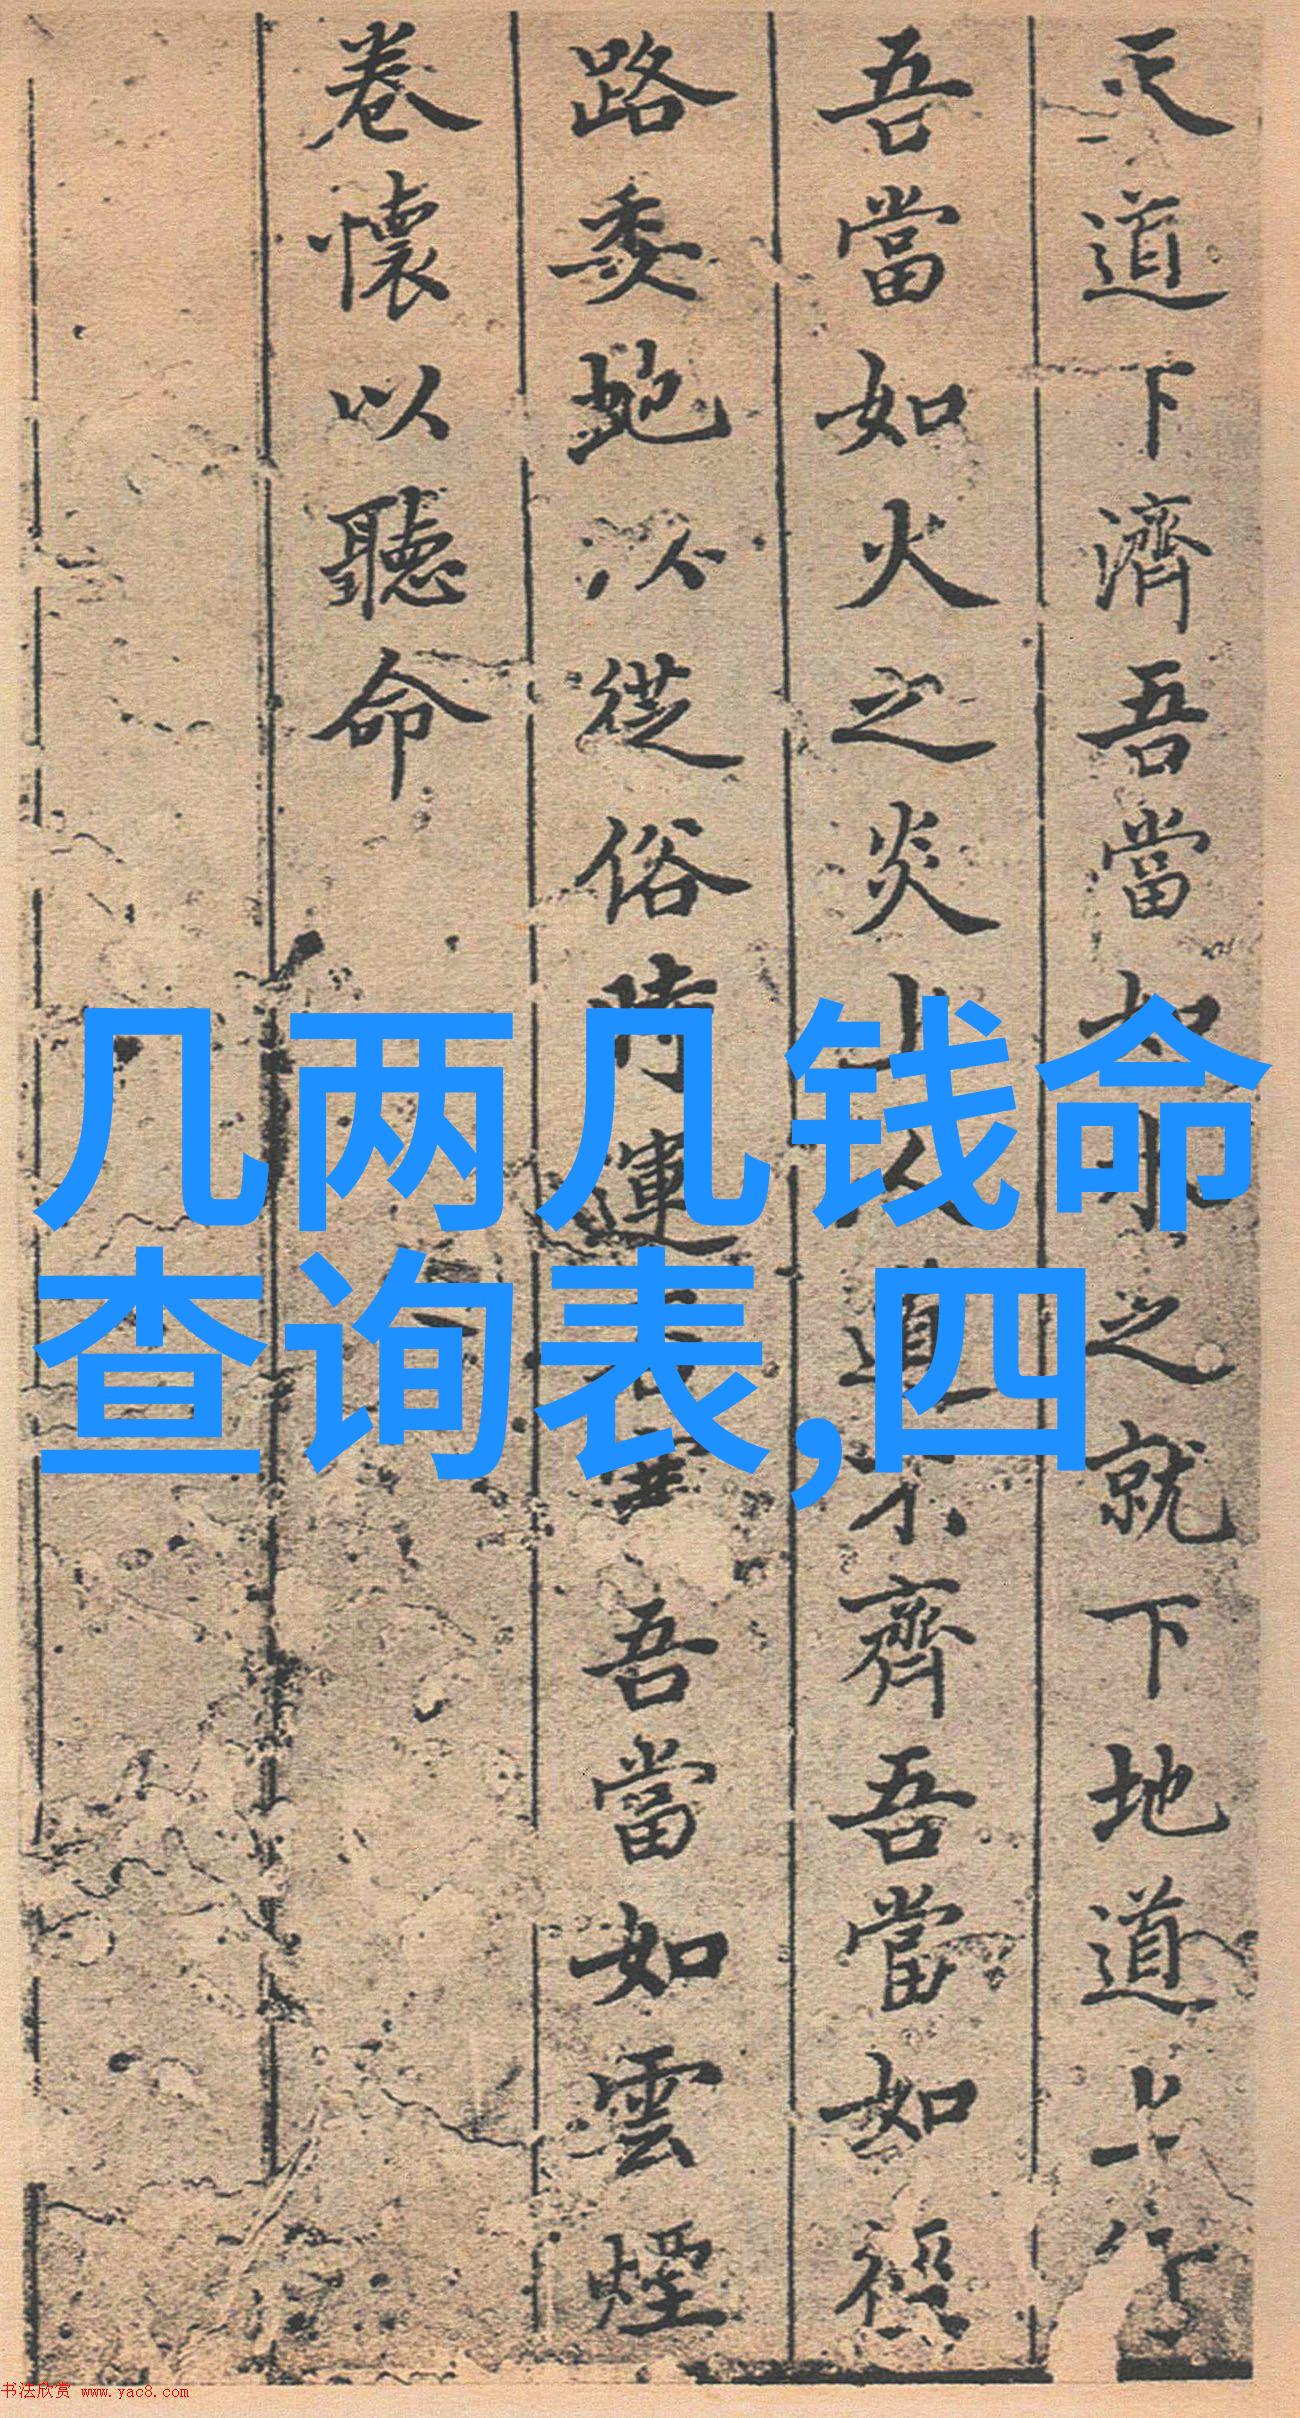 天道下濟吾當如水之就下地道上行
吾當如火之炎上人道不齊吾當如
路委蛇以從俗時運
吾當如雲煙
卷懷以聽命
几两几钱命
查询表,四
书法欣赏 www.yac8.com